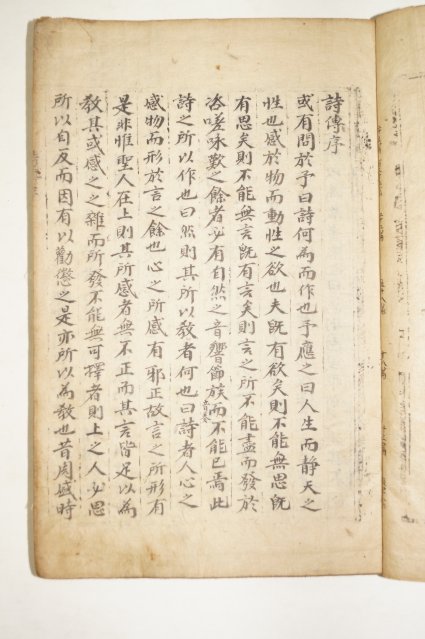 詩傳序
或有問於予曰詩何為而作也予應之曰人生而静天之
性也感於物而動性之欲也夫旣有欲矣則不能無思旣
有思矣則不能無言旣有言矣則言之所不能盡而發於
咨嗟咏歎之餘者必有自然之音響節族音奏而不能已焉此
詩之所以作也曰然則其所以敎者何也曰詩者人心之
感物而形於言之餘也心之所感有邪正故言之所形有
是非惟聖人在上則其所感者無不正而其言皆足以為
敎其或感之之雜而所發不能無可擇者則上之人必思
所以自反而因有以勸懲之是亦所以為敎也昔周盛時